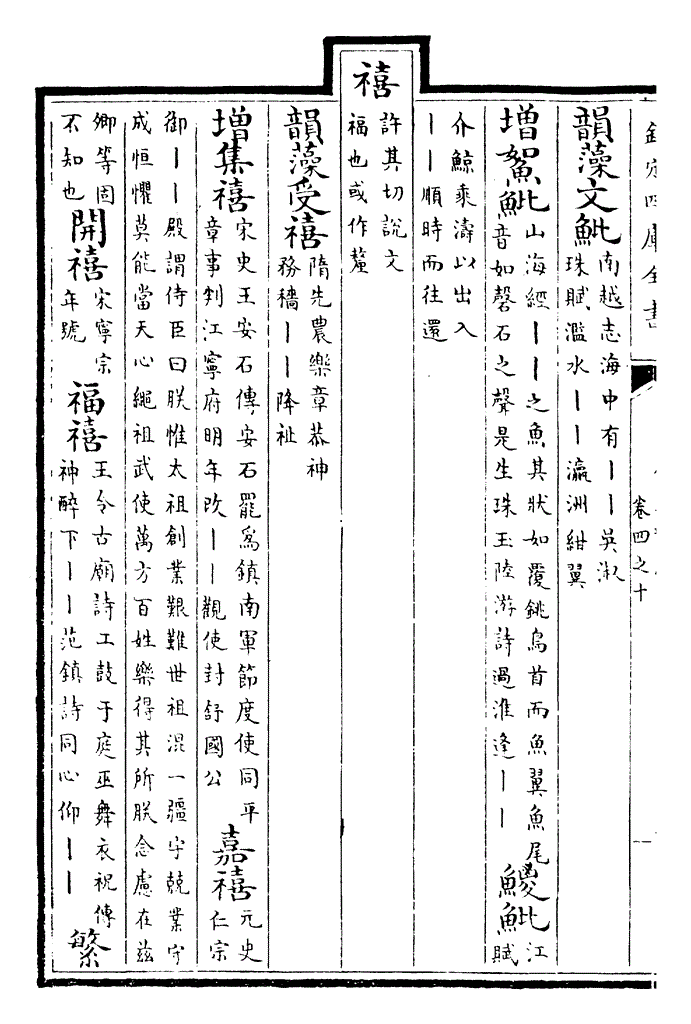 欽定四庫全書
卷四之十
韻藻文魮
南越志海中有丨丨吳淑
珠賦濫水丨丨瀛洲紺翼
增䰷魮
山海經丨丨之魚其狀如覆銚鳥首而魚翼魚尾
音如磬石之聲是生珠玉陸游詩過淮逢丨丨
鯼魮
江
賦
介鯨乘濤以出入
丨丨順時而往還
禧
許其切說文
福也或作釐
韻藻受禧
隋先農樂章恭神
務穡丨丨降祉
增集禧
宋史王安石傳安石罷爲鎮南軍節度使同平
章事判江寧府明年改丨丨觀使封舒國公
嘉禧
元史
仁宗
御丨丨殿謂侍臣曰朕惟太祖創業艱難世祖混一疆宇兢業守
成恒懼莫能當天心繩祖武使萬方百姓樂得其所朕念慮在茲
卿等固
不知也
開禧
宋寧宗
年號
福禧
王令古廟詩工鼓于庭巫舞衣祝傳
神醉下丨丨范鎮詩同心仰丨丨
繁